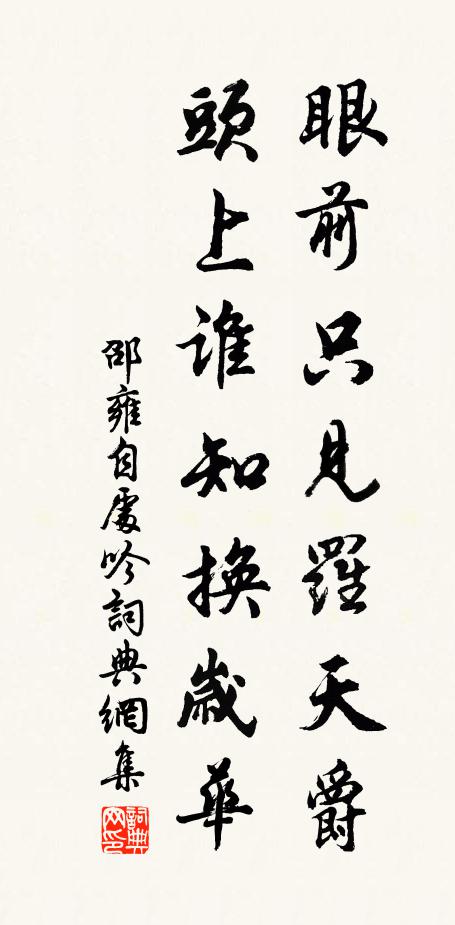 眼前只見羅天爵
頭上誰知換歲華
邵雍自處吟詞典網集
詞典网印